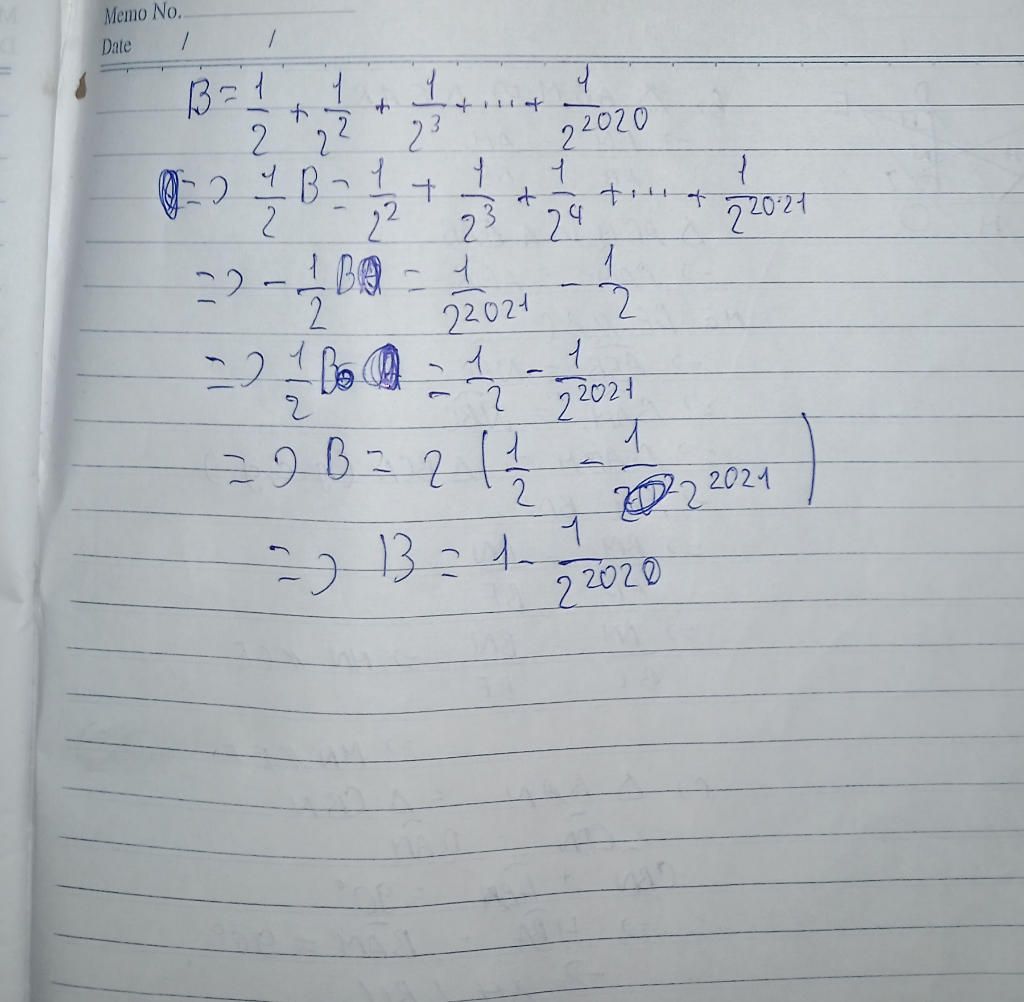 Memo No.
Date / /
B = 1/2 + 1/2^2 + 1/2^3 + ... + 1/2^2020
=> 1/2 B = 1/2^2 + 1/2^3 + 1/2^4 + ... + 1/2^2021
=> - 1/2 B = 1/2^2021 - 1/2
=> 1/2 B = 1/2 - 1/2^2021
=> B = 2 (1/2 - 1/2^2021)
=> B = 1 - 1/2^2020